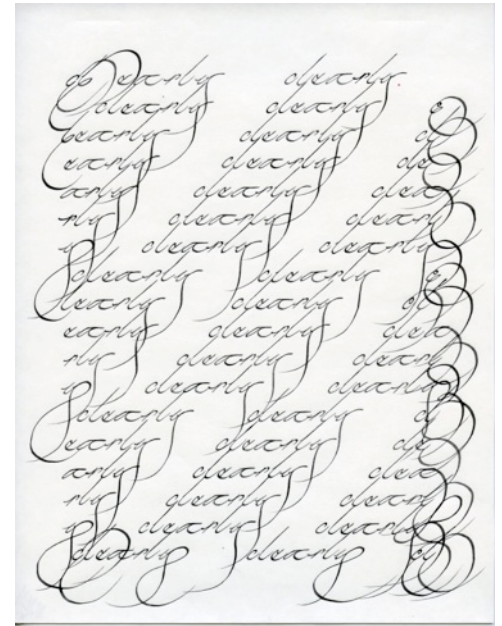 early clearly
clearly clearly c
learly clearly cl
early clearly cle
arly clearly clea
rly clearly clear
y clearly clearly
clearly clearly c
learly clearly cl
early clearly clea
rly clearly clear
y clearly clearly
clearly clearly cl
early clearly cle
arly clearly clea
rly clearly clear
y clearly clearly
clearly clearly cl